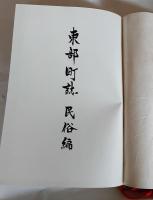 東部町誌 民俗編